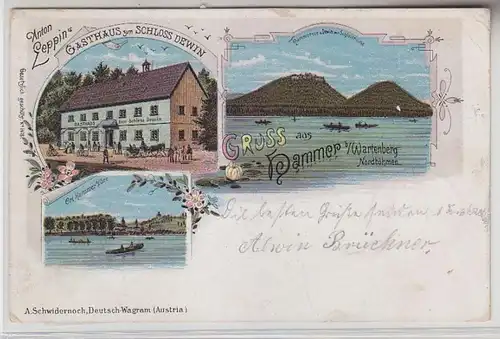 Anton
Zeppin's
GASTHAUS zum SCHLOSS DEWIN
GASTHAUS zum Schloss Dewin
GRUSS aus
Hammer b/Wartenberg
Nordböhmen.
Ort Hammer
Die besten Grüße senden
Alwin Brückner
A. Schwidernoch, Deutsch-Wagram (Austria)